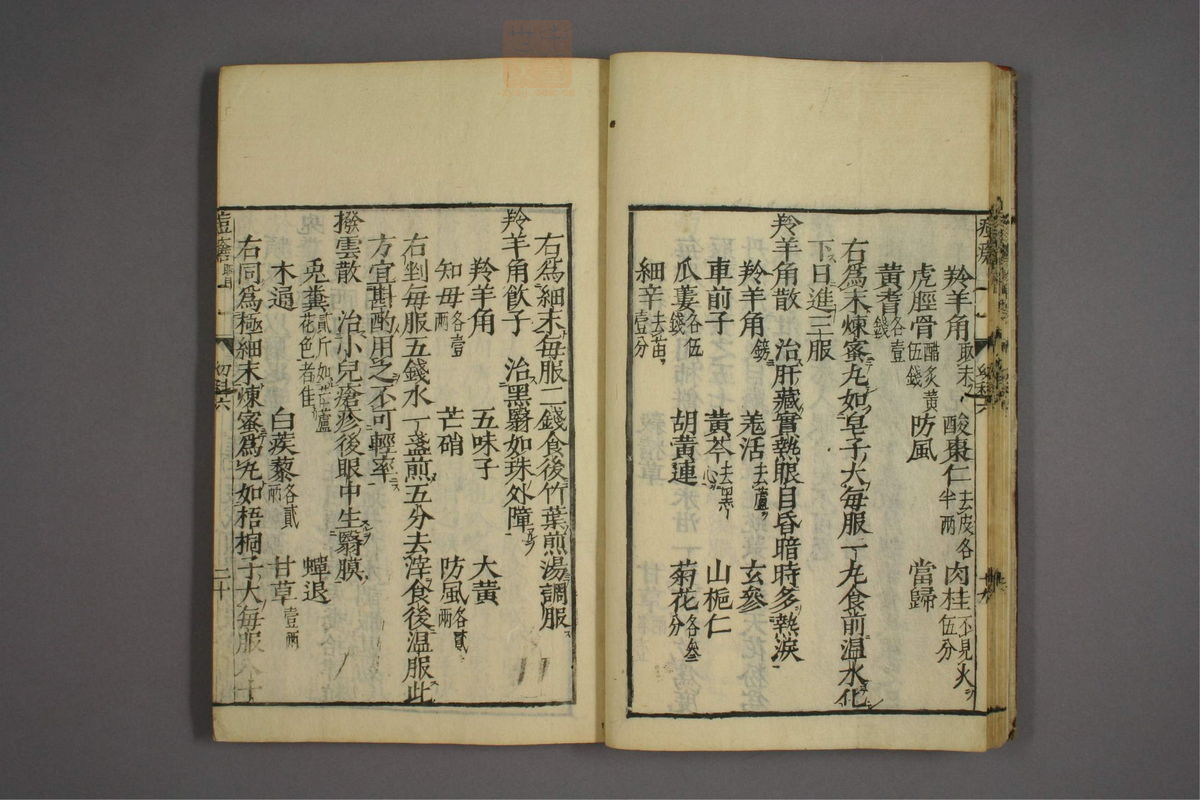 羚羊角取末 酸棗仁去皮各半兩 肉桂不見火伍分
虎脛骨醋炙黃伍錢 防風 當歸
黃耆各壹錢
右爲末煉蜜丸如皂子大毎服一丸食前温水化
下日進三服
羚羊角散 治肝藏實熱眼目昏暗時多熱淚
羚羊角鎊 羗活去蘆 玄參
車前子 黃芩去黑心 山梔仁
瓜蔞各伍錢 胡黃連 菊花各叁分
細辛去苗壹分
十九
右爲細末毎服二錢食後竹葉煎湯調服
羚羊角飲子 治黑翳如珠外障
羚羊角 五味子 大黃
知毋各壹兩 芒硝 防風各貳兩
右剉毎服五錢水一盞煎五分去滓食後温服此
方宜斟酌用之不可輕率
撥雲散 治小兒瘡疹後眼中生翳膜
兎糞貳斤如芒蘆花色者佳 蟬退
木通 白蒺藜各貳兩 甘草壹兩
右同爲極細末煉蜜爲丸如梧桐子大毎服八十
痘瘡眼目 幼科六 二十